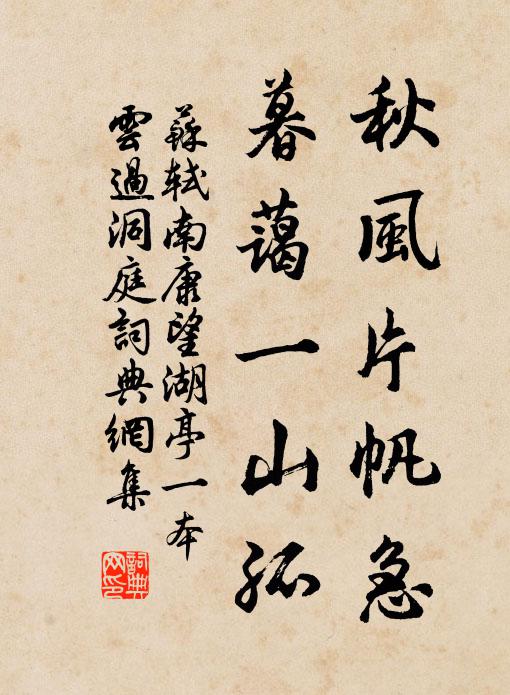 秋風片帆急
暮藹一山孤
蘇軾南康望湖亭一本
雲過洞庭詞典網集
詞典
網印